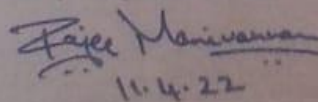 Rajee Manivannan
11.4.22